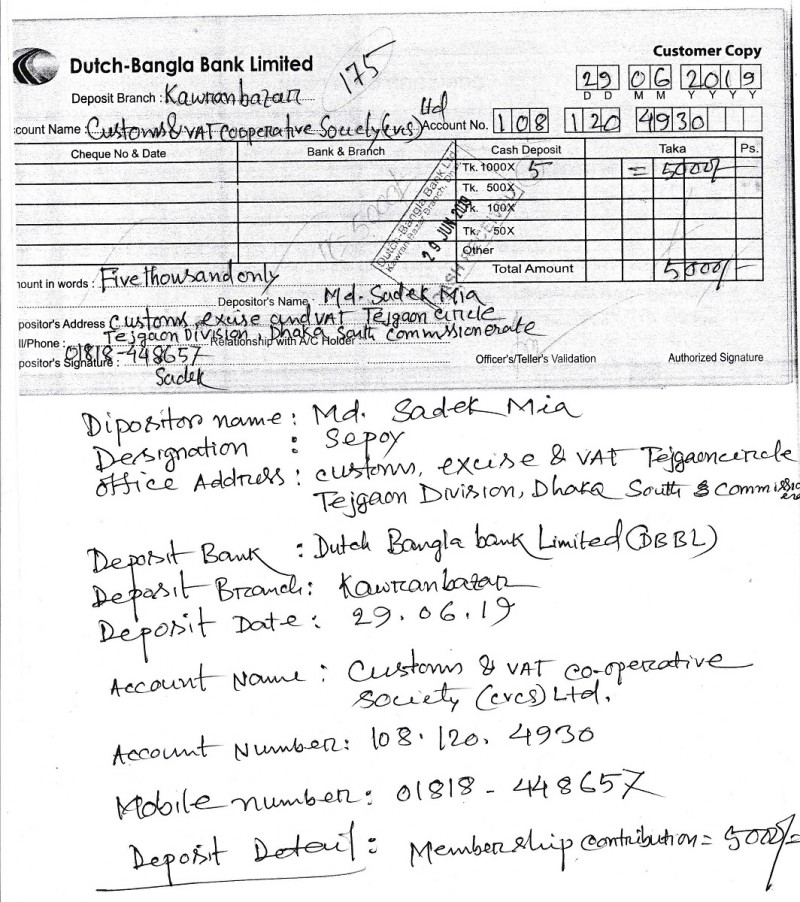 Customer Copy
Dutch-Bangla Bank Limited
175
29 06 2019
D D M M Y Y Y Y
Deposit Branch : Kawranbazar
Ltd
count Name : Customs & VAT Cooperative Society (cvcs) Account No. 108 120 4930
Cheque No & Date Bank & Branch Cash Deposit Taka Ps.
Tk. 1000X 5 = 5000/-
Tk. 500X
Tk. 100X
Tk. 50X
Other
Total Amount 5000/-
Dutch-Bangla Bank Ltd
Kawran Bazar Branch,
29 JUN 2019
nount in words : Five thousand only
Depositor's Name : Md. Sadek Mia
positor's Address Customs, excise and VAT Tejgaon circle
Tejgaon Division, Dhaka South Commissionerate
ll/Phone : 01818-448657 Relationship with A/C Holder
positor's Signature : Sadek
Officer's/Teller's Validation Authorized Signature
Dipositor name : Md. Sadek Mia
Designation : Sepoy
Office Address : customs, excise & VAT Tejgaon circle
Tejgaon Division, Dhaka South
Deposit Bank : Dutch Bangla bank Limited (DBBL)
Deposit Branch : Kawranbazar
Deposit Date : 29.06.19
Account Name : Customs & VAT co-operative
Society (cvcs) Ltd.
Account Number : 108.120.4930
Mobile number : 01818-448657
Deposit Detail : Membership contribution = 5000/=